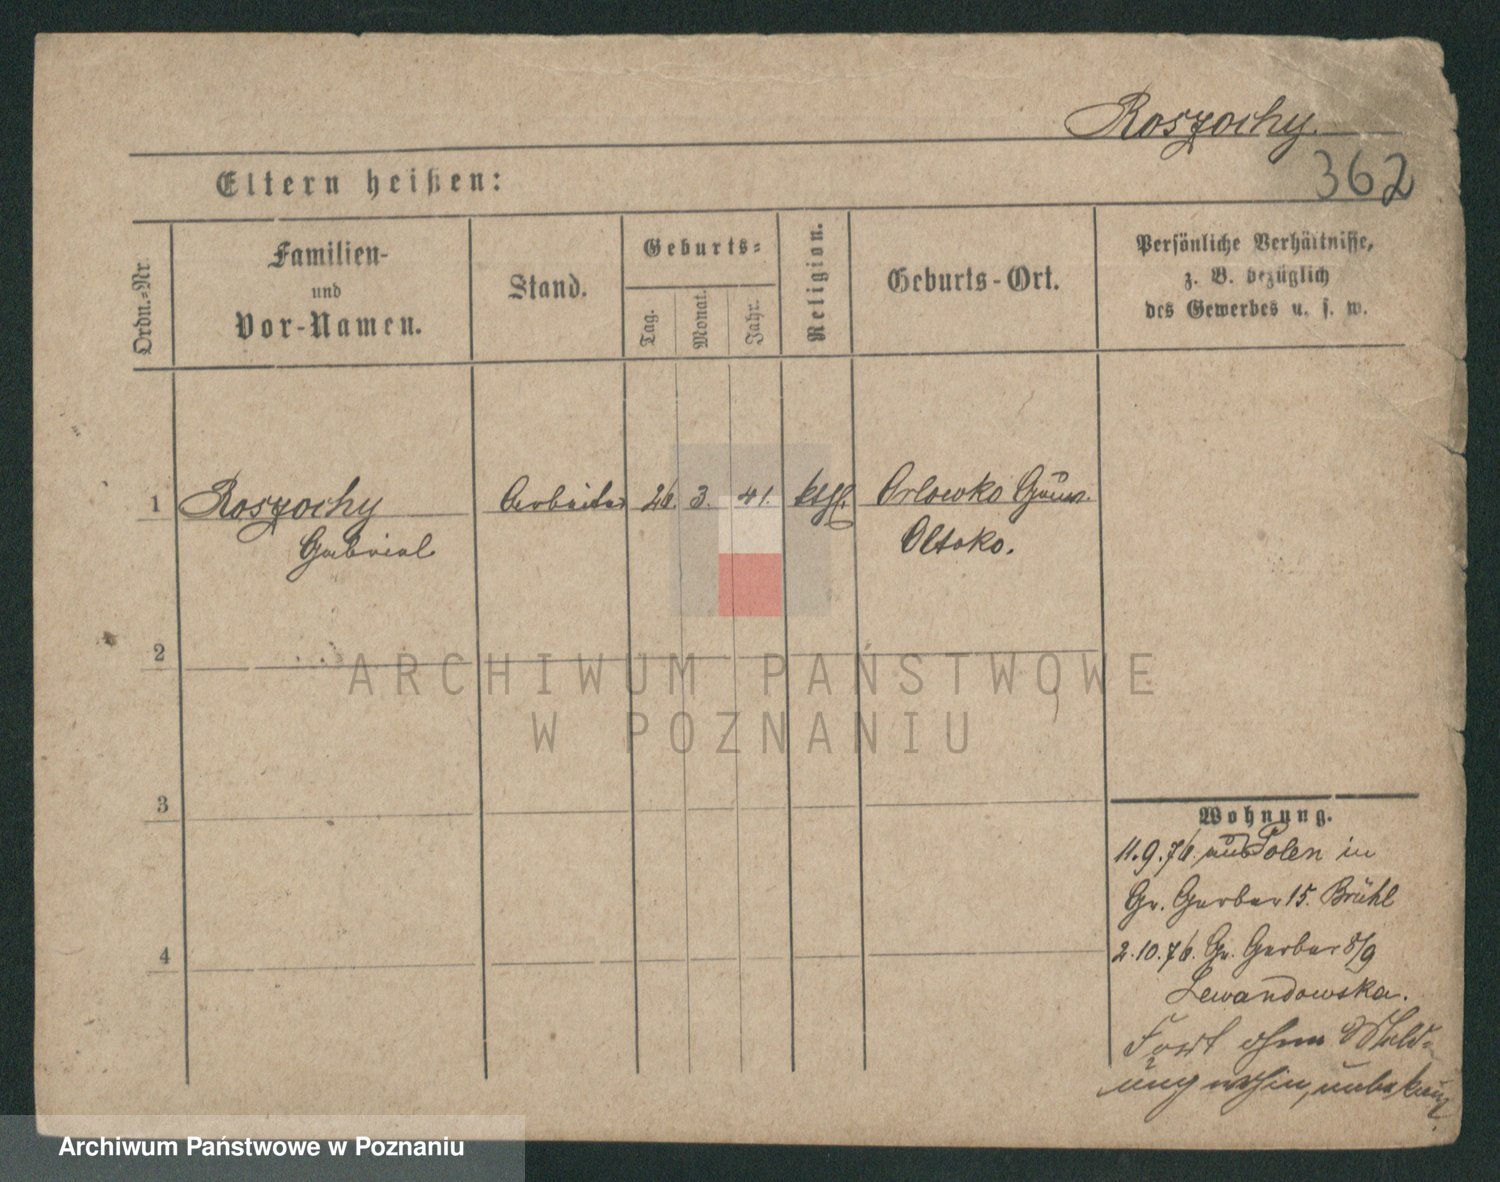 Roszochy.
362
Eltern heißen:
Ordn.=Nr.
Familien-
und
Vor-Namen.
Stand.
Geburts=
Tag.
Monat.
Jahr.
Religion.
Geburts-Ort.
Persönliche Verhältnisse,
z. B. bezüglich
des Gewerbes u. s. w.
1 Roszochy Arbeiter 26. 3. 41. kthl. Orlowko
Gabriel
2
3
4
Wohnung.
11. 9. 76. aus Polen in
Gr. Gerber 15. Brühl
2. 10. 76. Gr. Gerber 8/9
Lewandowska.
Fort ohne Meld-
ung wohin, unbekannt.
ARCHIWUM PAŃSTWOWE
W POZNANIU
Archiwum Państwowe w Poznaniu